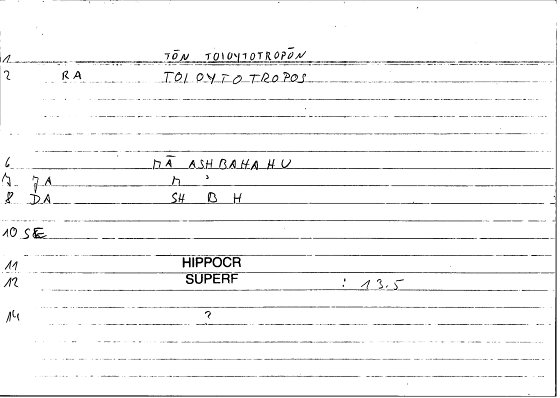 1 TŌN TOIOYTOTROPŌN
2 RA TOIOYTOTROPOS
6 MĀ ASHBAHAHU
7 JA M ʾ
8 DA SH B H
10 SE
11 HIPPOCR
12 SUPERF : 13.5
14 ?